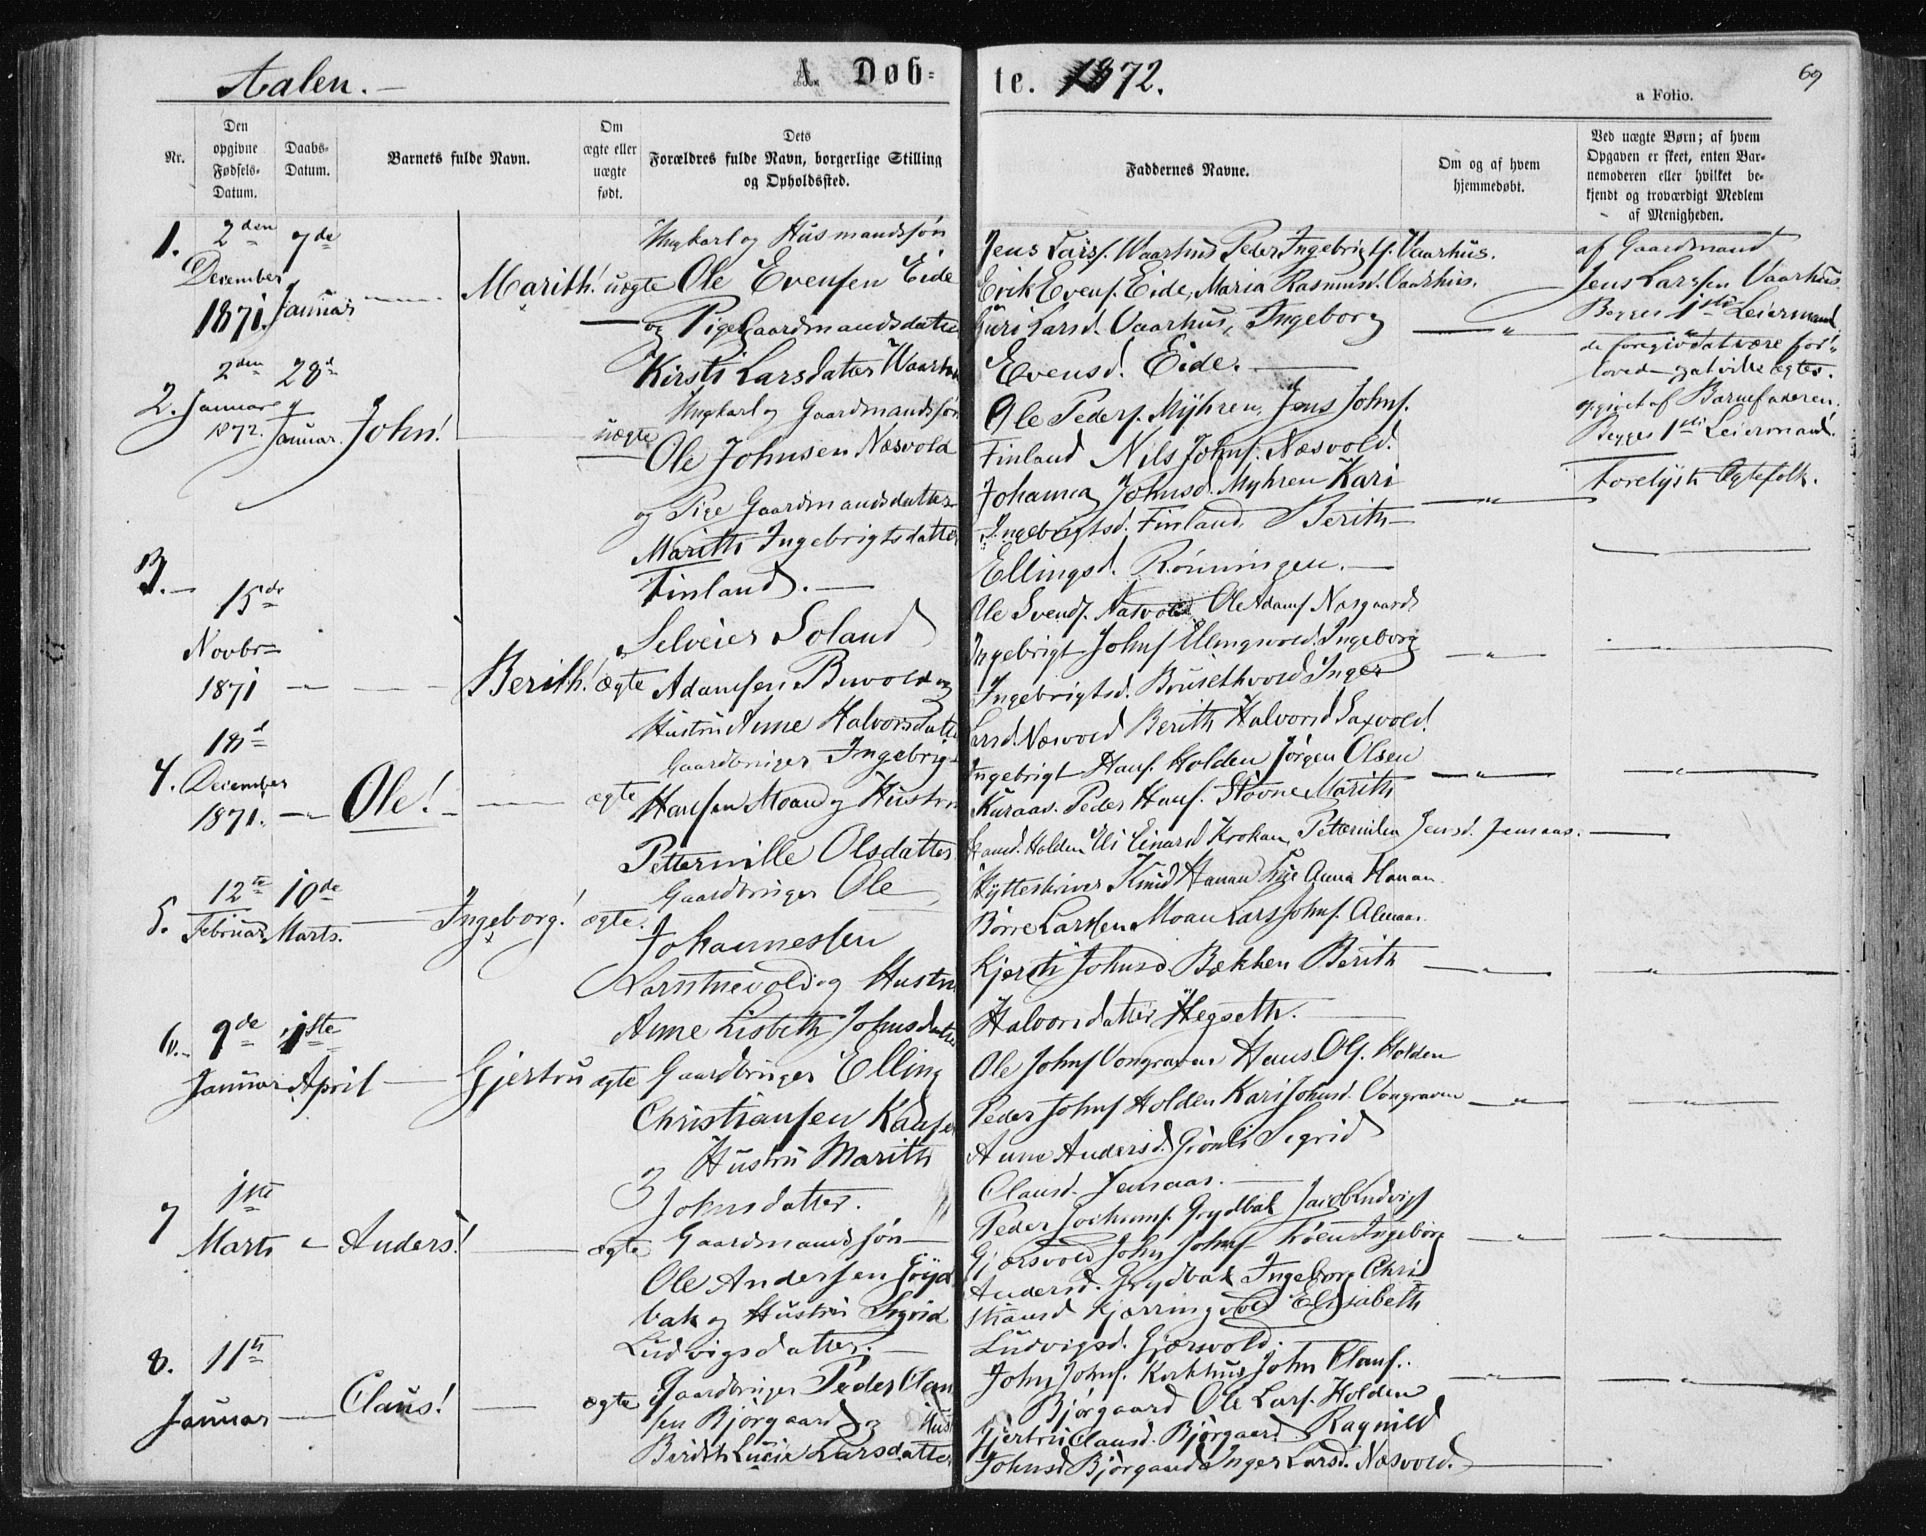 Aalen.
A. Døb=
te. 1872.
69
a Folio.
Nr.
Den opgivne Fødsels-Datum.
Daabs-Datum.
Barnets fulde Navn.
Om ægte eller uægte født.
Dets Forældres fulde Navn, borgerlige Stilling og Opholdssted.
Faddernes Navne.
Om og af hvem hjemmedøbt.
Ved uægte Børn; af hvem Opgaven er skeet, enten Barnemoderen eller hvilket bekjendt og troværdigt Medlem af Menigheden.
1.
2den December 1871.
7de Januar
Marith!
uægte
Ungkarl og Husmandssøn
Ole Evensen Eide
og Pige Gaardmandsdatter
Kirsti Larsdatter Waarhus
Jens Larss. Waarhus Peder Ingebrigts. Vaarhus.
Erik Evens. Eide, Maria Rasmusd. Vaarhus.
Guri Larsd. Vaarhus, Ingeborg
Evensd. Eide.
af Gaardmand
Jens Larssen Vaarhus.
Begges 1ste Leiermaal.
de foregiver at være for-
lovede og at ville ægtes.
2.
2den Januar 1872.
28d Januar.
John!
uægte
Ungkarl og Gaardmandssøn
Ole Johnsen Næsvold
og Pige Gaardmandsdatter
Marith Ingebrigtsdatter
Finland.
Ole Peders. Myhren, Jens Johns.
Finland Nils Johns. Næsvold.
Johanna Johnsd. Myhren Kari
Ingebrigtsd. Finland Berith
Ellingsd. Rønningen.
opgivet af Barnefaderen.
Begges 1ste Leiermaal.
Forelyste Ægtefolk.
3.
15de Novbr 1871
Berith!
ægte
Selveier Soland
Adamsen Buvold og
Hustru Anne Halvorsdatter
Ole Svends. Næsvold Ole Adams. Næsgaard
Ingebrigt Johns Ellingsvold. Ingeborg
Ingebrigtsd. Brusethvold Inger
Larsd. Næsvold Berith Halvorsd Saxvold.
4.
18d December 1871.
Ole!
ægte
Gaardbruger Ingebrigt
Hansen Moan og Hustru
Petternille Olsdatter
Ingebrigt Hans. Holden Jørgen Olsen
Kuraas. Peder Hans. Støvne Marith
Hansd. Holden Eli Einarsd Krokan, Petternilla Jensd. Jensaas.
5.
12te Februar
10de Marts.
Ingeborg!
ægte.
Gaardbruger Ole
Johannessen
og Hustru
Anne Lisbeth Johnsdatter
Hytteskriver Knud Hanan Frue Anna Hanan.
Børre Larssen Moan Lars Johns. Almaas.
Kjersti Johnsd. Bækken Berith
Halvorsdatter Hegseth.
6.
9de Januar
1ste April
Gjertru
ægte
Gaardbruger Elling
Christiansen
og Hustru Marith
Johnsdatter.
Ole Johns Vongraven Hans Ols. Holden
Peder Johns Holden Kari Johnsd. Vongraven
Anne Andersd. Grønli Sigrid
Clausd. Jensaas.
7
1ste Marts
Anders!
ægte
Gaardmandssøn
Ole Andersen Gryd-
bak og Hustru Sigrid
Ludvigsdatter.
Peder Jochums. Grydbak Jacob Ludvigs
Gjærsvold John Johns Kroen Ingeborg
Andersd. Grydbak Ingeborg Chri
stiansd Kjærringvold Elisabeth
Ludvigsd. Gjærsvold.
8.
11te Januar
Claus!
ægte
Gaardbruger Peder Clau
sen Bjørgaard og Hus.
Berith Lucie Larsdatter
John Johns. Kirkhus John Claus.
Bjørgaard Ole Lars. Holden
Gjertru Clausd. Bjørgaard Ragnild
Johnsd Bjørgaard Inger Larsd. Næsvold.